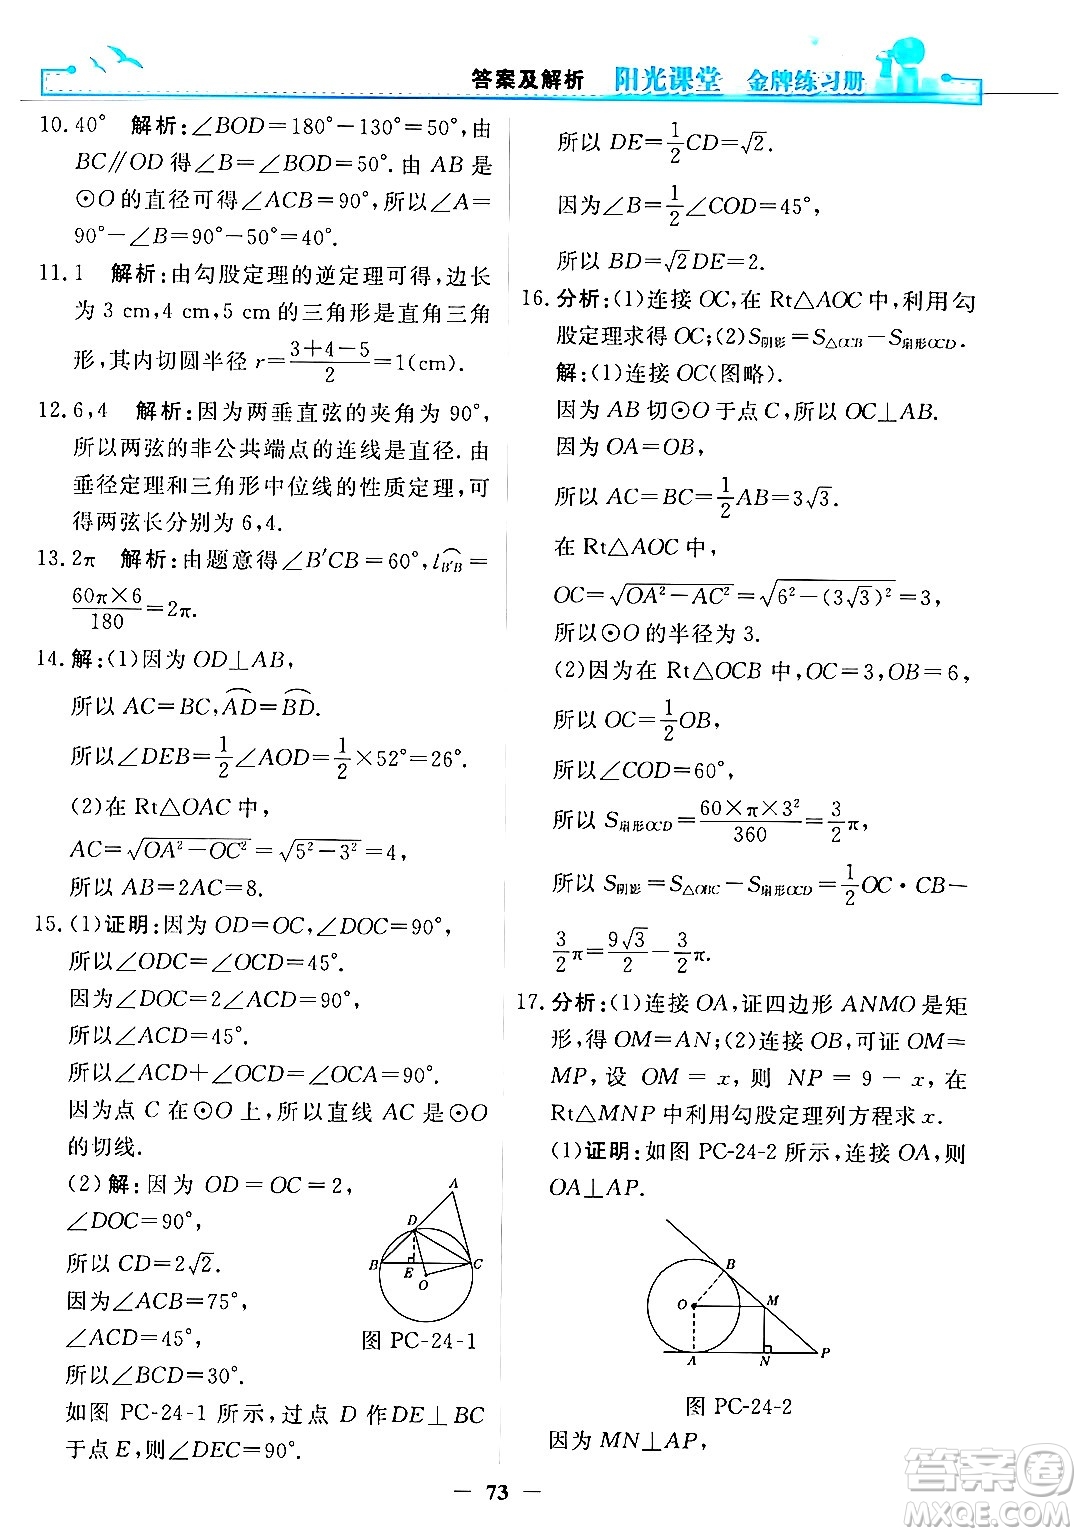 答案及解析 阳光课堂 金牌练习册
10.40° 解析:∠BOD=180°-130°=50°,由
BC∥OD得∠B=∠BOD=50°.由AB是
⊙O的直径可得∠ACB=90°,所以∠A=
90°-∠B=90°-50°=40°.
11.1 解析:由勾股定理的逆定理可得,边长
为3 cm,4 cm,5 cm的三角形是直角三角
形,其内切圆半径 r=\frac{3+4-5}{2}=1(cm).
12.6,4 解析:因为两垂直弦的夹角为90°,
所以两弦的非公共端点的连线是直径.由
垂径定理和三角形中位线的性质定理,可
得两弦长分别为6,4.
13.2π 解析:由题意得∠B′CB=60°,l_{\overset{\frown}{B′B}}=
\frac{60π×6}{180}=2π.
14.解:(1)因为OD⊥AB,
所以AC=BC,\overset{\frown}{AD}=\overset{\frown}{BD}.
所以∠DEB=\frac{1}{2}∠AOD=\frac{1}{2}×52°=26°.
(2)在Rt△OAC中,
AC=\sqrt{OA²-OC²}=\sqrt{5²-3²}=4,
所以AB=2AC=8.
15.(1)证明:因为OD=OC,∠DOC=90°,
所以∠ODC=∠OCD=45°.
因为∠DOC=2∠ACD=90°,
所以∠ACD=45°.
所以∠ACD+∠OCD=∠OCA=90°.
因为点C在⊙O上,所以直线AC是⊙O
的切线.
(2)解:因为OD=OC=2,
∠DOC=90°,
所以CD=2\sqrt{2}.
因为∠ACB=75°,
∠ACD=45°,
所以∠BCD=30°.
A
D
B
E
C
O
图 PC-24-1
如图 PC-24-1 所示,过点D作DE⊥BC
于点E,则∠DEC=90°.
所以DE=\frac{1}{2}CD=\sqrt{2}.
因为∠B=\frac{1}{2}∠COD=45°,
所以BD=\sqrt{2}DE=2.
16.分析:(1)连接OC,在Rt△AOC中,利用勾
股定理求得OC;(2)S_{阴影}=S_{△OCB}-S_{扇形OCD}.
解:(1)连接OC(图略).
因为AB切⊙O于点C,所以OC⊥AB.
因为OA=OB,
所以AC=BC=\frac{1}{2}AB=3\sqrt{3}.
在Rt△AOC中,
OC=\sqrt{OA²-AC²}=\sqrt{6²-(3\sqrt{3})²}=3,
所以⊙O的半径为3.
(2)因为在Rt△OCB中,OC=3,OB=6,
所以OC=\frac{1}{2}OB,
所以∠COD=60°,
所以S_{扇形OCD}=\frac{60×π×3²}{360}=\frac{3}{2}π,
所以S_{阴影}=S_{△OBC}-S_{扇形OCD}=\frac{1}{2}OC·CB-
\frac{3}{2}π=\frac{9\sqrt{3}}{2}-\frac{3}{2}π.
17.分析:(1)连接OA,证四边形ANMO是矩
形,得OM=AN;(2)连接OB,可证OM=
MP,设 OM=x,则 NP=9-x,在
Rt△MNP中利用勾股定理列方程求x.
(1)证明:如图PC-24-2所示,连接OA,则
OA⊥AP.
B
O
M
A
N
P
图 PC-24-2
因为MN⊥AP,
— 73 —
答案圈
MXQE.COM